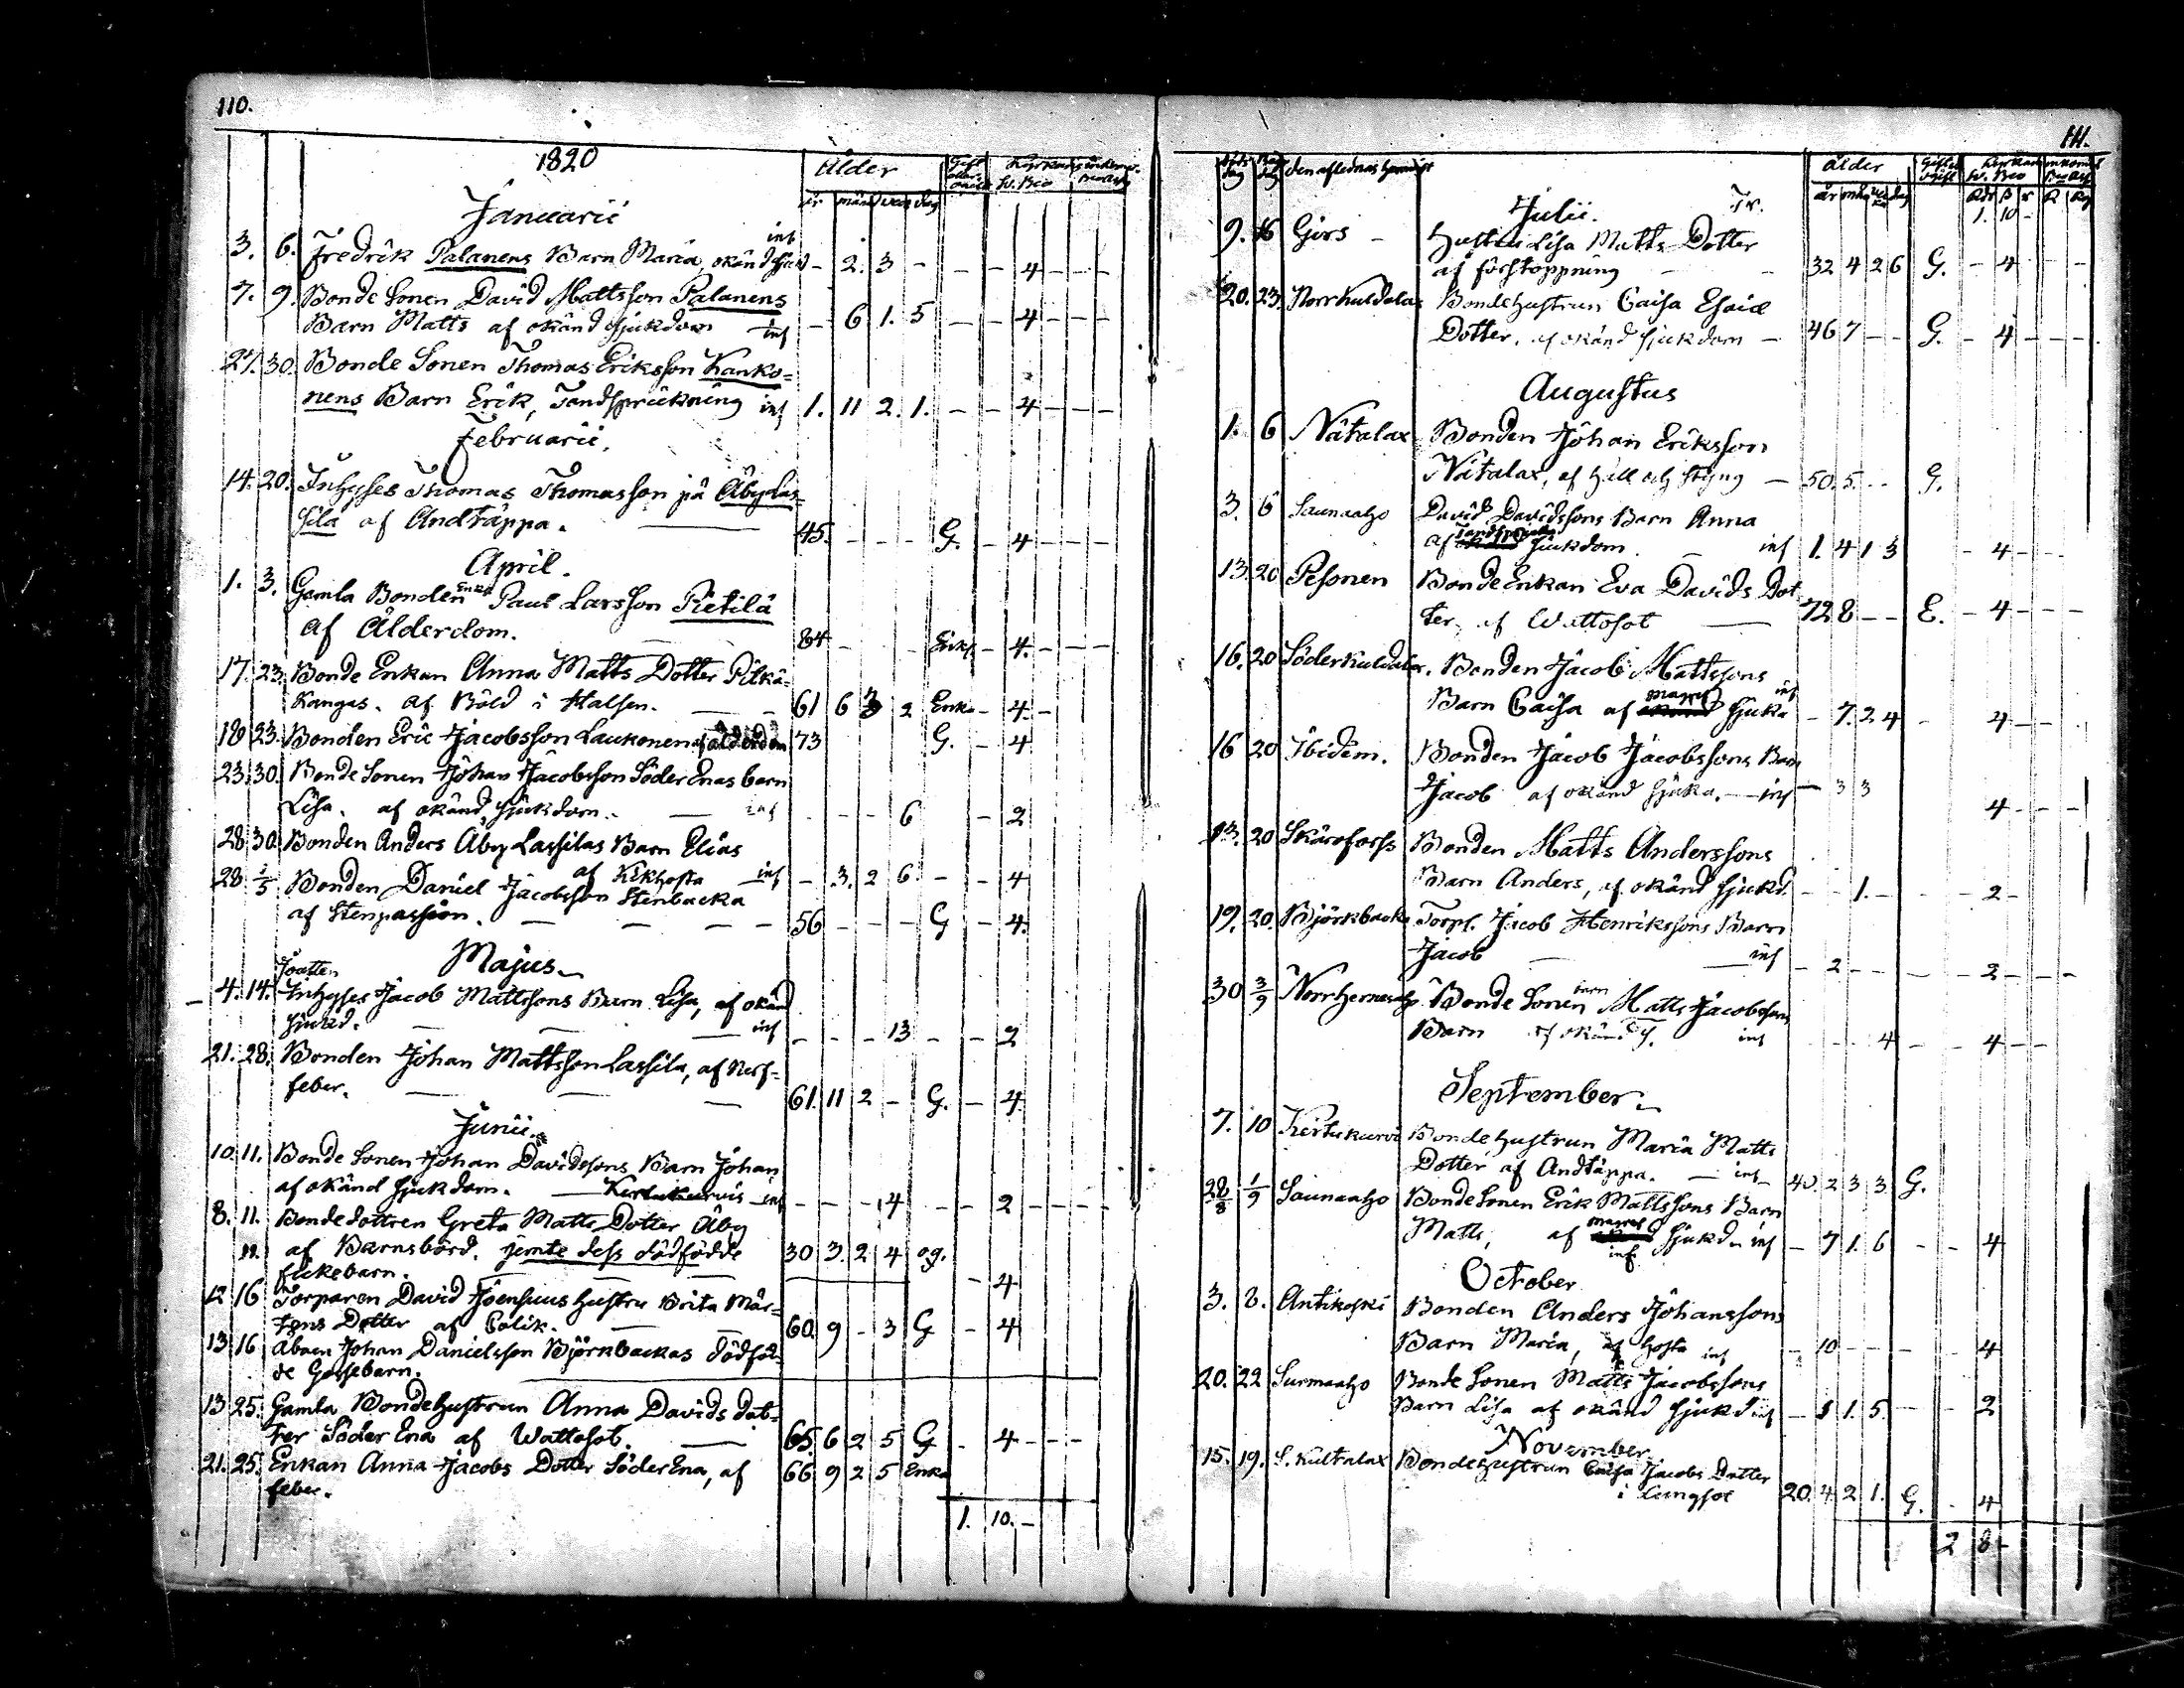 110.
1820
Ålder
år månd veck dag
Januarii
3. 6. Fredrik Palanens Barn Maria, okänd sjukd inf - 2. 3 - - - 4 - - -
7. 9. Bonde Sonen David Mattsson Palanens
Barn Matts af okänd sjukdom inf - 6 1. 5 - - 4 - - -
27. 30. Bonde Sonen Thomas Eriksson Kanko=
nens Barn Erik, Tandsprickning inf 1. 11 2. 1. - - 4 - - -
Februarii.
14. 20. Inhyses Thomas Thomasson på Åbylas=
sila af Andtäppa. 45. - - - G. - 4 - - -
April.
1. 3. Gamla Bonden Enkl Paul Larsson Pietilä
af Ålderdom. 84 - - - Enkl - 4. - - -
17. 23. Bonde Enkan Anna Matts Dotter Pitkä=
Kangas. af Böld i Halsen. 61 6 3 2 Enka - 4. -
18 23. Bonden Eric Jacobsson Laukonen af ålderdom 73 G. - 4
23. 30. Bonde Sonen Johan Jacobsson Söder Enas barn
Lisa. af okänd sjukdom. inf - - - 6 - 2
28 30. Bonden Anders Åby Lassilas Barn Elias
af Kikhosta inf - 3. 2 6 - - 4
28 1/5 Bonden Daniel Jacobsson Stenbacka
af Stenpassion. 56 - - - G - 4.
Majus
Joatten
4. 14. Inhyses Jacob Mattssons Barn Lisa, af okänd
sjukd. inf - - - 13 - - 2
21. 28. Bonden Johan Mattsson Lassila, af Nerf=
feber. 61. 11 2 - G. - 4.
Junii.
10. 11. Bonde Sonen Johan Davidssons Barn Johan
af okänd sjukdom. Kertukurvis inf - - - 14 - - 2 - - -
8. 11. Bondedottren Greta Matts Dotter Åby
11. af Barnsbörd. jemte dess dödfödde 30 3. 2 4 og.
flickebarn. - 4
12 16 Torparen David Joensuus hustru Brita Mår=
tens Dotter af Colik. 60. 9 - 3 G - 4
13 16 Åboen Johan Danielsson Björkbackas dödföd=
de Gossebarn.
13 25. Gamla Bondehustrun Anna Davids dot=
ter Söder Ena af Wattosot. 65. 6 2 5 G - 4 - - -
21. 25. Enkan Anna Jacobs Dotter Söder Ena, af 66 9 2 5 Enka
feber.
1. 10. -
111.
den aflednas hemvist
Ålder
Julii. Tr. 1. 10 -
9. 16 Girs - Hustru Lisa Matts Dotter
af förstoppning - 32 4 2 6 G. - 4 - -
20. 23. Norrkuldalax Bondehustrun Caisa Esaiæ
Dotter. af okänd sjukdom - 46 7 - - G. - 4 - - -
Augustus
1. 6 Nätalax Bonden Johan Eriksson
Nätalax, af håll och styng - 50. 5. - - G.
3. 6 Saunaaho David Davidssons Barn Anna
af sjukdom. inf 1. 4 1 3 - 4 - -
13. 20 Pesonen Bonde Enkan Eva Davids Dot
ter, af Wattosot 72 8 - - E. - 4 - - -
16. 20 Söderkuldalax. Bonden Jacob Mattssons
Barn Caisa af magres sjuka inf - 7. 2 4 - 4 - -
16 20 Ibidem. Bonden Jacob Jacobssons Barn
Jacob af okänd sjuka. inf - 3 3 4 - - -
13. 20 Skärsforss Bonden Matts Anderssons
Barn Anders, af okänd sjukd. - - 1. - - - 2 -
19. 20. Björkbacka Torp. Jacob Henrikssons Barn
Jacob inf - 2 - - - 2 - - -
30 3/9 Norrhernesaho Bonde Sonen barn Matts Jacobssons
Barn af okänd sj. inf - - - 4 - - 4 - -
September
7. 10 Kertukurvi Bondehustrun Maria Matts
Dotter af Andtäppa. inf 40. 2 3 3 G.
28/8 1/9 Saunaaho Bonde Sonen Erik Mattssons Barn
Matts, af magres sjukd. inf - 7 1. 6 - - 4
inf
October
3. 8. Antikoski Bonden Anders Johanssons
Barn Maria, af hosta inf - 10 - - - 4
20. 22 Surmaaho Bonde Sonen Matts Jacobssons
Barn Lisa af okänd sjukd inf - 1 1. 5. - - 2
November
15. 19. S. Kultalax Bondehustrun Caisa Jacobs Dotter
i Lungsot 20. 4 2 1. G. - 4
2 8 -